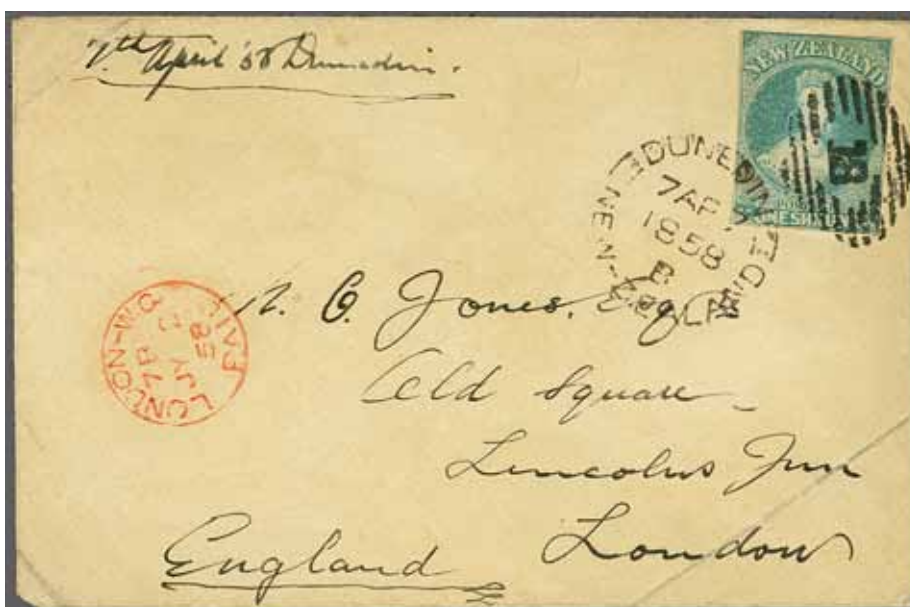 7th April '58 Dunedin.
NEW ZEALAND
ONE SHILLING
18
DUNEDIN
NEW-ZEALAND
7 AP
1858
B
LONDON-W.C
PAID
7 
JY
58
Jones, Esq
Old Square
Lincolns Inn
London
England